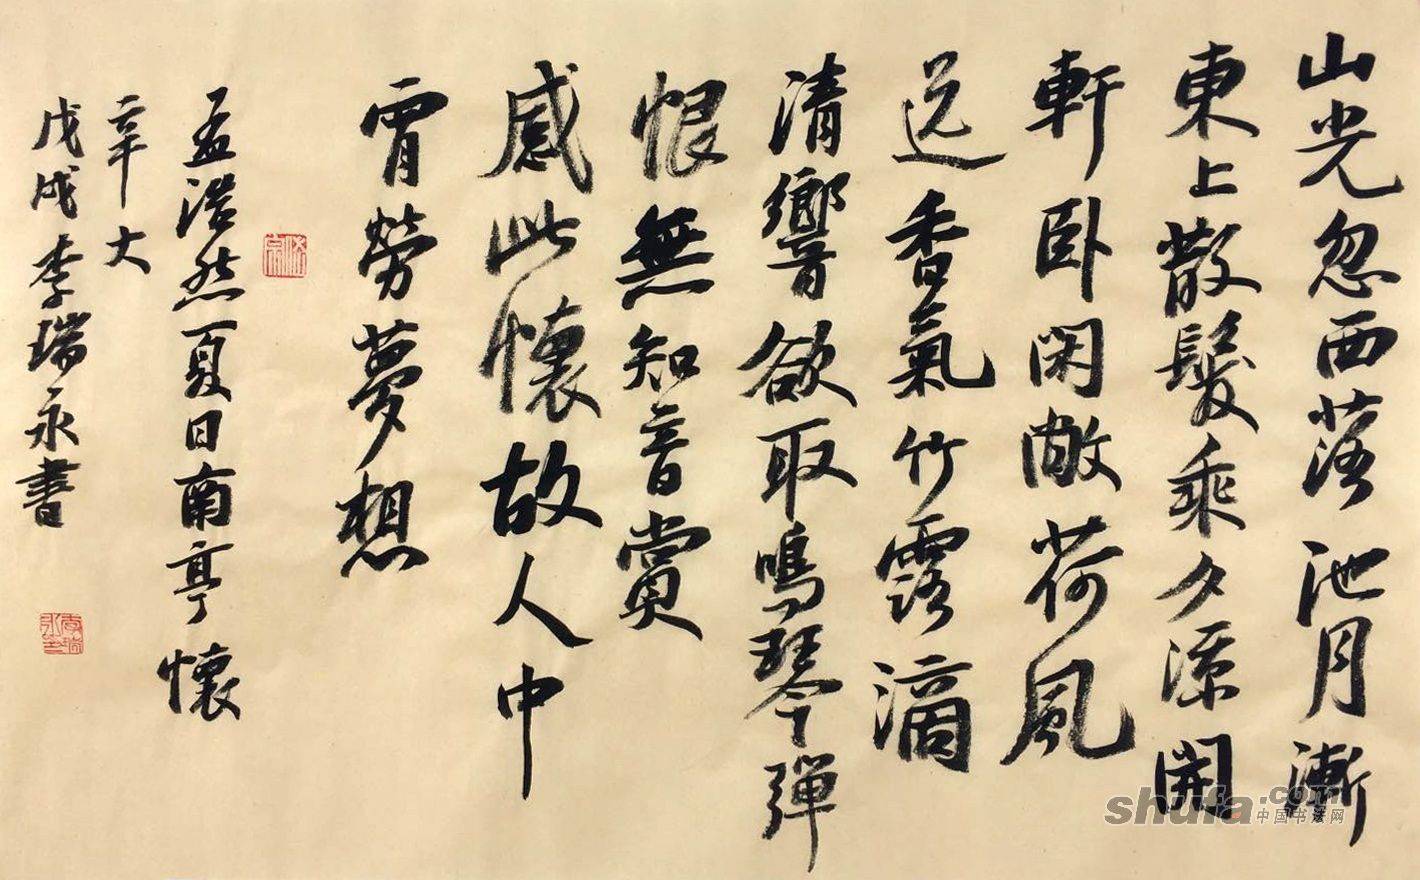 山光忽西落池月漸
東上散髮乘夕涼開
軒卧閑敞荷風
送香氣竹露滴
清響欲取鳴琴彈
恨無知音賞
感此懷故人中
宵勞夢想
孟浩然夏日南亭懷
辛大
戊戌李瑞永書
shufa.com
中国书法网